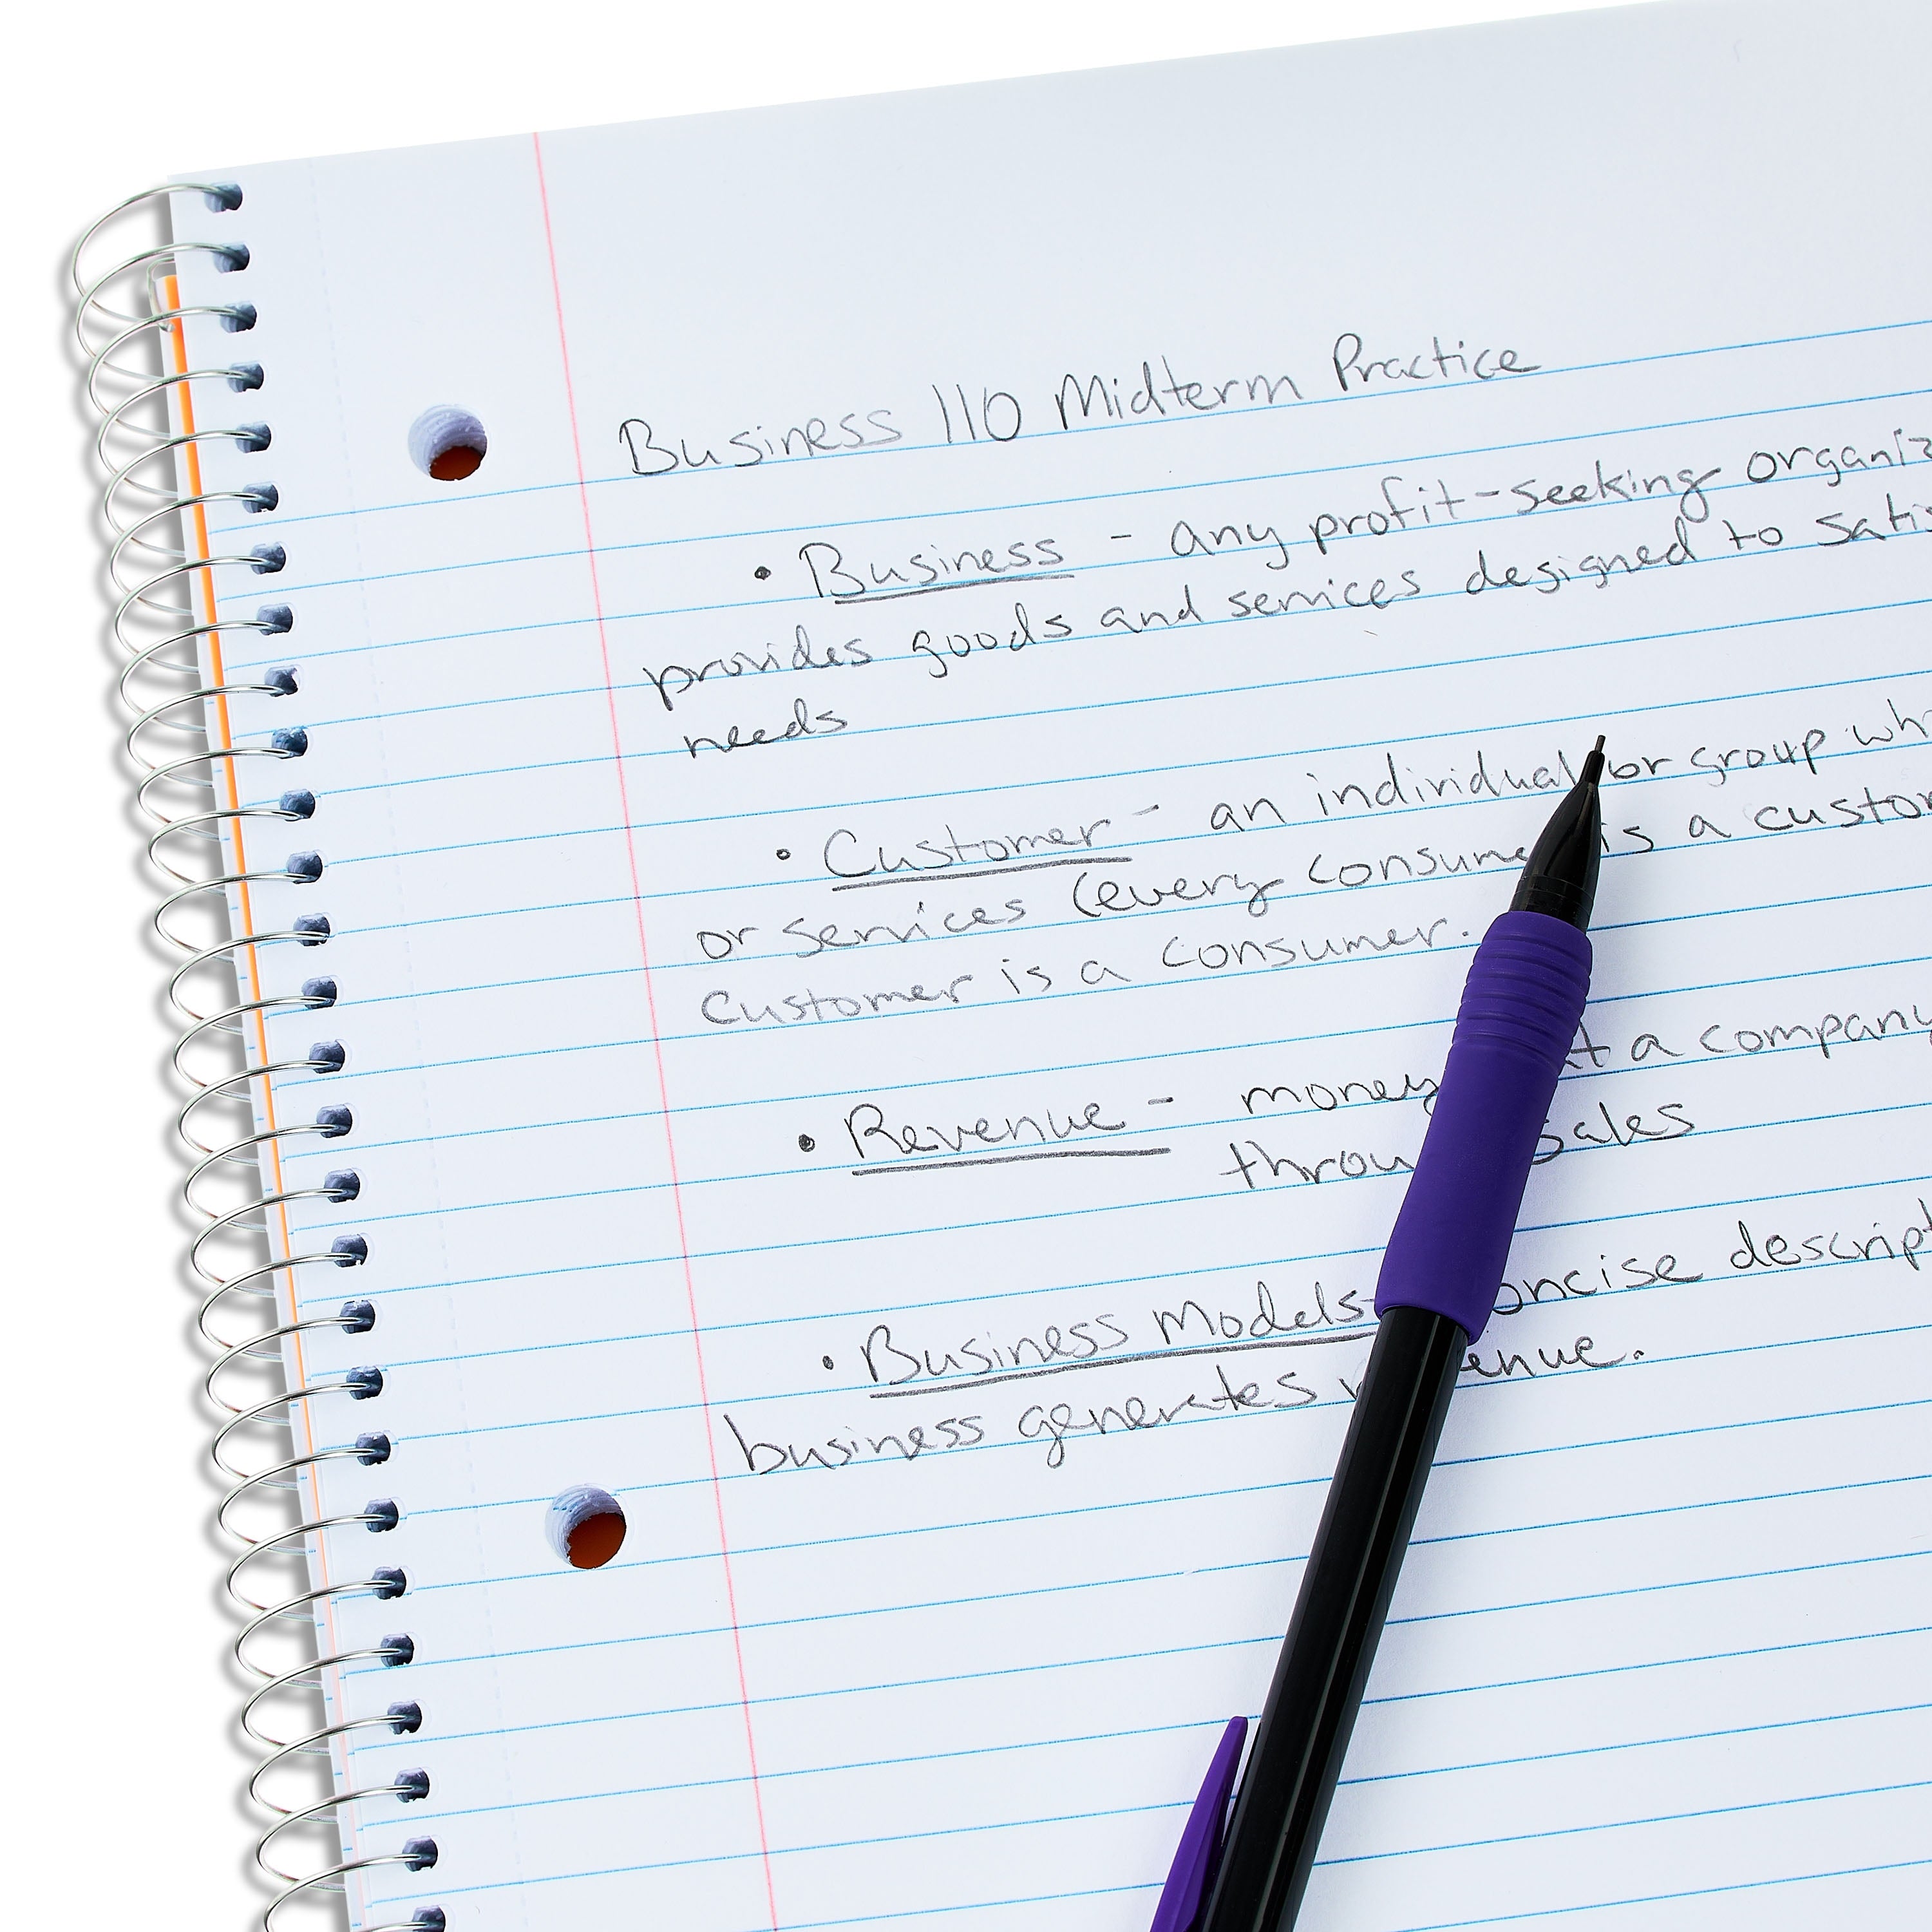 Business 110 Midterm Practice
• Business - any profit-seeking
provides goods and services designed to
needs
• Customer - an individual or group
or services (every consumer is a
Customer is a consumer.
• Revenue - money a company
sales
• Business Models-
business generates